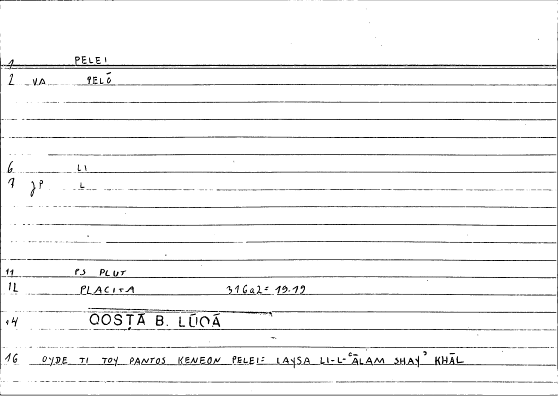 1 PELEI
2 VA PELŌ
6 LI
7 JP L
11 PS PLUT
12 PLACITA 316a2= 19.19
14 QOSṬĀ B. LŪQĀ
16 OYDE TI TOY PANTOS KENEON PELEI= LAYSA LI-L-ʿĀLAM SHAYʾ KHĀL